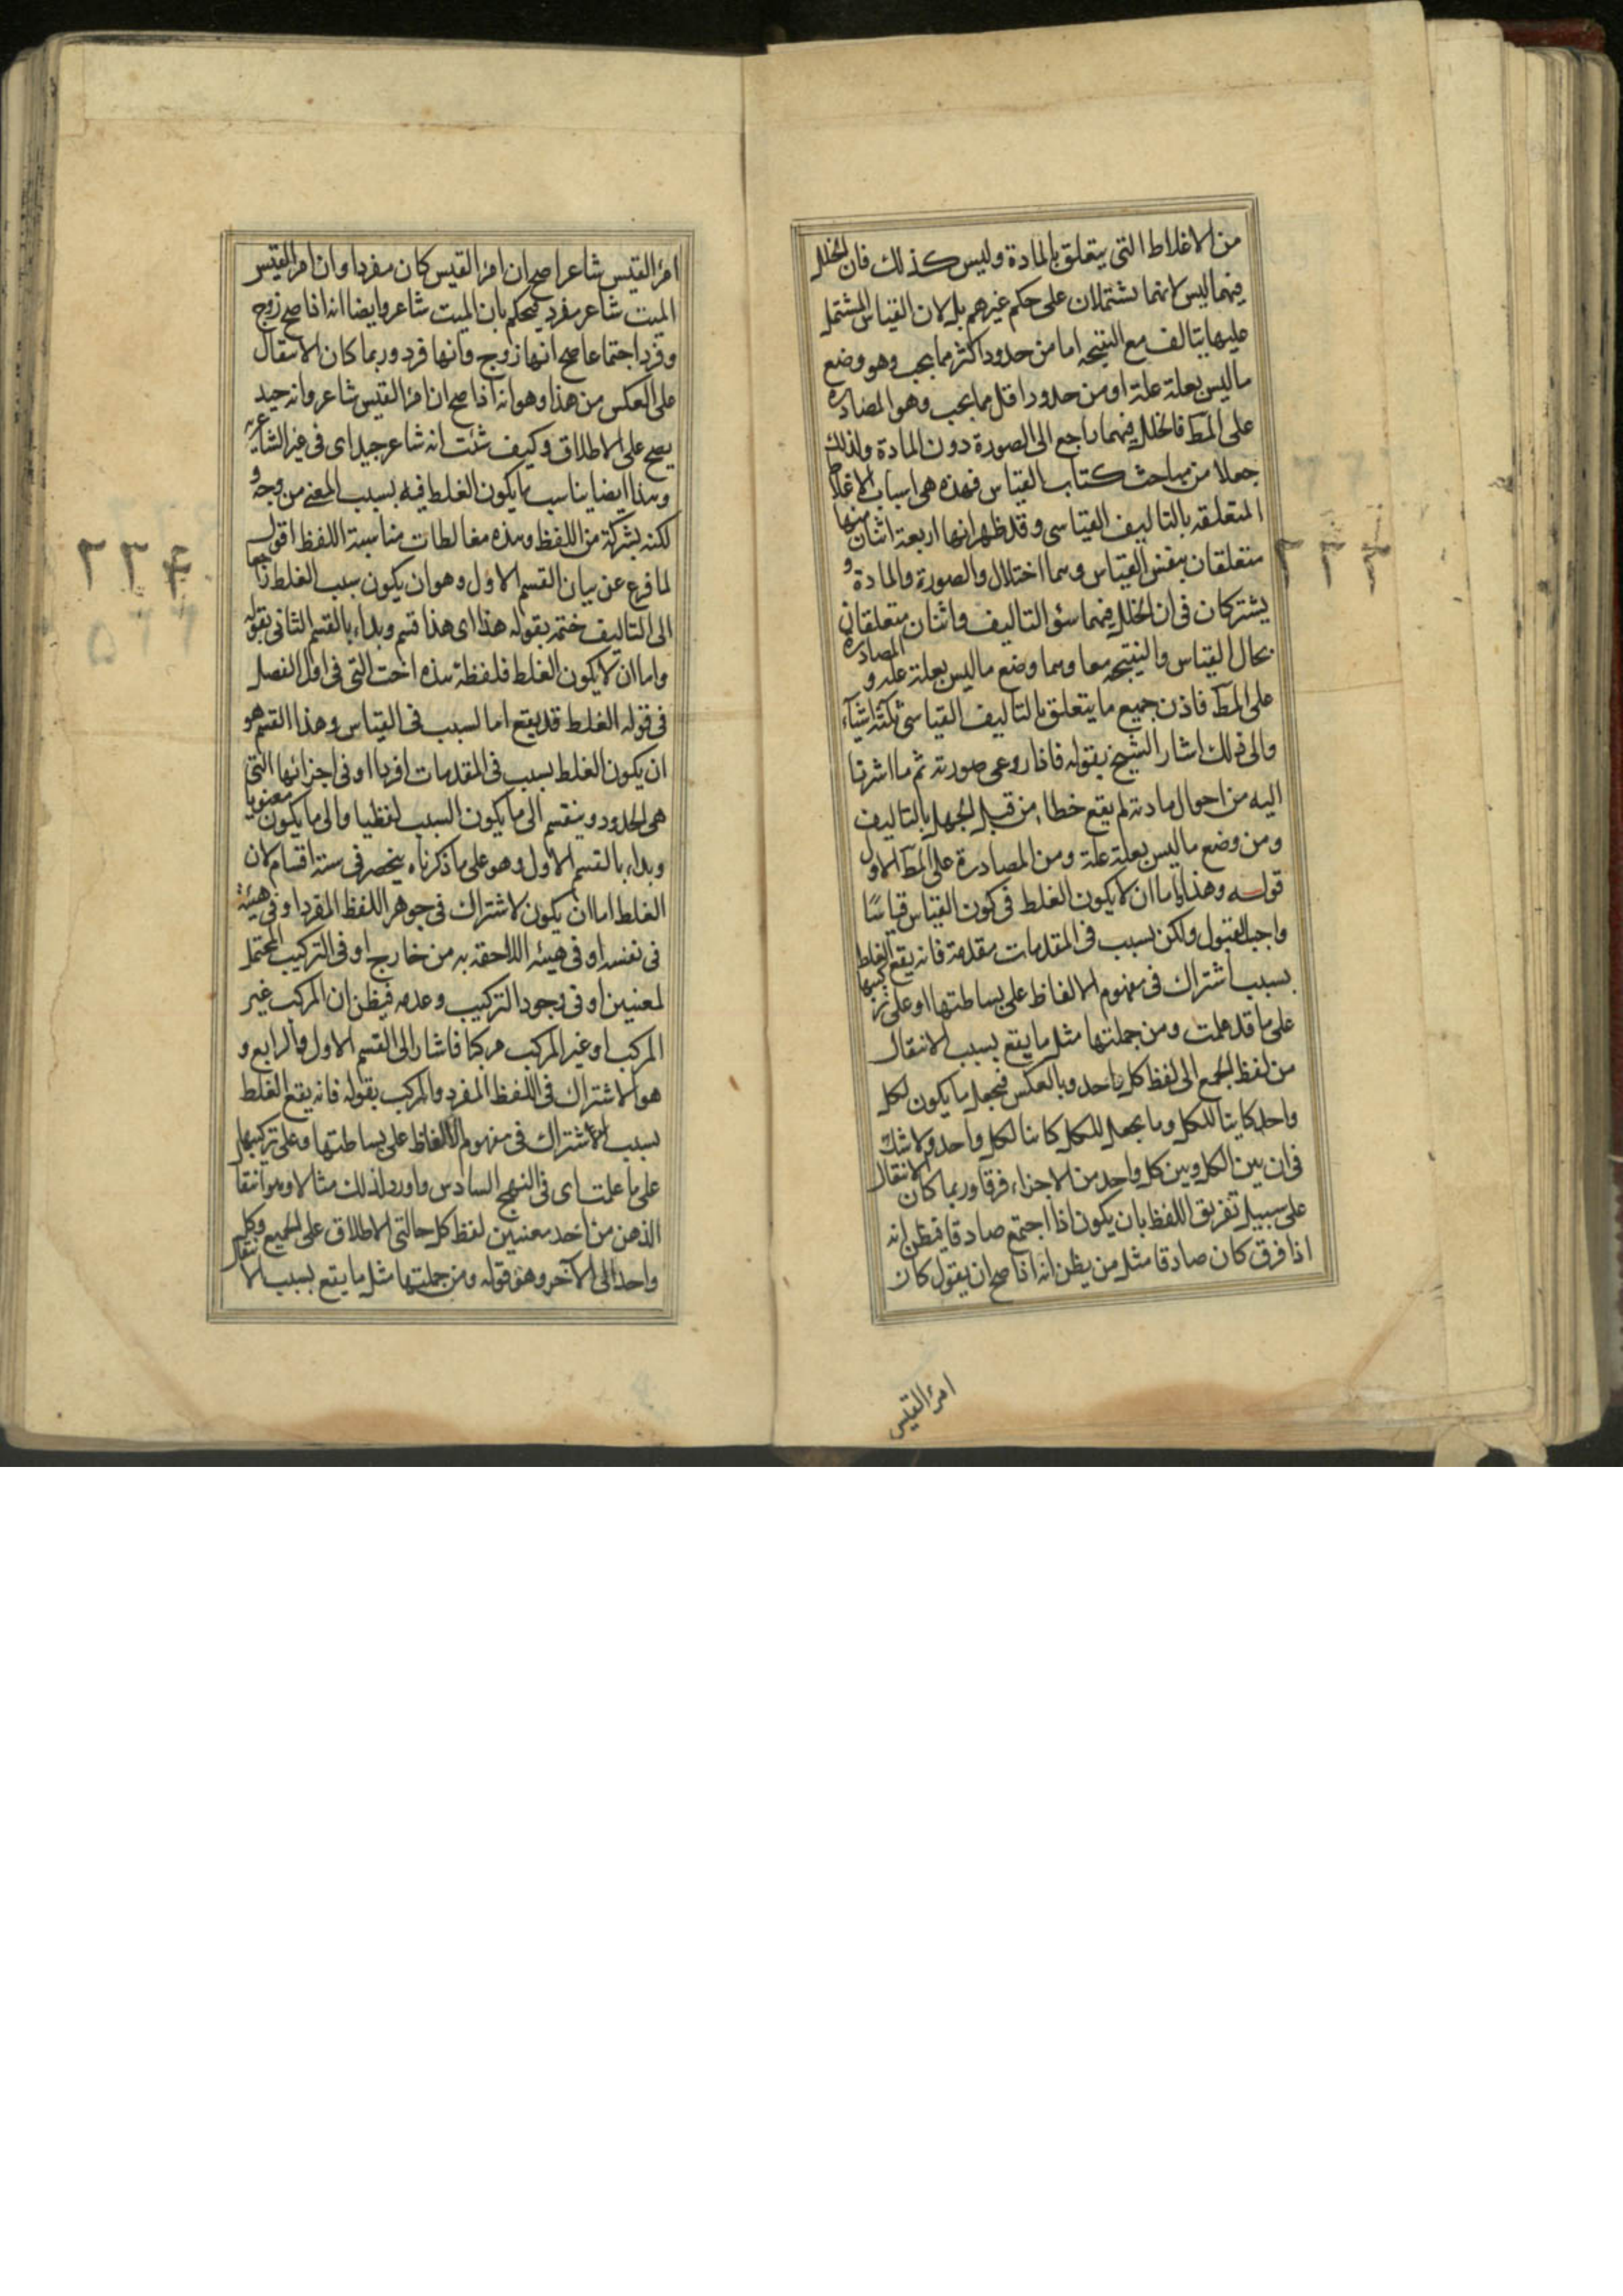 من الاغلاط التى يتعلق بالمادة وليس كذلك فان الخلل
فيهما ليس لانهما يشتملان على حكم غيرهم بل لان القياس المشتمل
عليها يتالف مع النتيجه اما من حدود اكثر مما يجب وهو وضع
ماليس بعلة علة او من حدود اقل مما يجب وهو المصادرة
على المط فالخلل فيهما راجع الى الصورة دون المادة ولذلك
جعلا من مباحث كتاب القياس فهذه هى اسباب الاغلاط
المتعلقه بالتاليف القياسى وقد ظهر انها اربعة اثنان منها
متعلقان بنفس القياس وهما اختلال والصورة والمادة و
يشتركان فى ان الخلل فيهما سؤ التاليف واثنان متعلقان
بحال القياس والنتيجه معا وهما وضع ماليس بعلة علة و المصادرة
على المط فاذن جميع ما يتعلق بالتاليف القياسى ثلثة اشيآء
والى ذلك اشار الشيخ بقوله فاذا روعى صورته ثم ما اشرنا
اليه من احوال مادته لم يقع خطاء من قبل الجهل بالتاليف
ومن وضع ماليس بعلة علة ومن المصادرة على المط الاول
قوله وهذا واما ان لا يكون الغلط فى كون القياس قياسًا
واجب القبول ولكن بسبب فى المقدمات مقدمة فانه يقع الغلط
بسبب اشتراك فى مفهوم الالفاظ على بساطتها او على تركيبها
على ما قد علمت ومن جملتها مثل ما يقع بسبب الانتقال
من لفظ الجمع الى لفظ كل واحد وبالعكس فيجعل ما يكون لكل
واحد كاينا للكل وما يجعل للكل كاينا لكل واحد ولا شك
فى ان بين الكل وبين كل واحد من الاجزاء فرقا وربما كان الانتقال
على سبيل تفريق اللفظ بان يكون اذا اجتمع صادقا فيظن انه
اذا فرق كان صادقا مثل من يظن انه اذا صح ان يقول كان
امرؤ القيس
امرؤ القيس شاعرا صح ان امرؤ القيس كان مفردا وان امرؤ القيس
الميت شاعر مفرد فيحكم بان الميت شاعر وايضا انه اذا صح زوج
وفرد اجتماعا صح انها زوج وانها فرد وربما كان الانتقال
على العكس من هذا وهو انه اذا صح ان امرؤ القيس شاعر وانه جيد
يصح على الاطلاق وكيف شئت انه شاعر جيد اى فى غير الشاعرية
وهذا ايضا يناسب ما يكون الغلط فيه بسبب المعنى من وجه و
لكنه بشركة من اللفظ وهذه مغالطات مناسبة اللفظ اقول
لما فرغ عن بيان القسم الاول وهو ان يكون سبب الغلط راجعا
الى التاليف ختمه بقوله هذا اى هذا قسم وبداء بالقسم الثانى بقوله
واما ان لا يكون الغلط فلفظة هذه اخت التى فى اول الفصل
فى قوله الغلط قد يقع اما لسبب فى القياس وهذا القسم هو
ان يكون الغلط بسبب فى المقدمات افرادا او فى اجزائها التى
هى الحدود وينقسم الى ما يكون السبب لفظيا والى ما يكون معنويا
وبداء بالقسم الاول وهو على ما ذكرناه ينحصر فى ستة اقسام لان
الغلط اما ان يكون لاشتراك فى جوهر اللفظ المفرد او فى هيئة
فى نفسه او فى هيئه اللاحقه به من خارج او فى التركيب المحتمل
لمعنيين او فى وجود التركيب وعدمه فيظن ان المركب غير
المركب او غير المركب مركبا فاشار الى القسم الاول والرابع و
هو الاشتراك فى اللفظ المفرد والمركب بقوله فانه يقع الغلط
بسبب الاشتراك فى مفهوم الالفاظ على بساطتها وعلى تركيبها
على ما علمت اى فى النهج السادس واورد لذلك مثالا وهو انتقا
الذهن من احد معنيين لفظ كل حالتى الاطلاق على الجميع وكل
واحد الى الآخر وهو قوله ومن جملتها مثل ما يقع بسبب الانتقال
٢٣٤